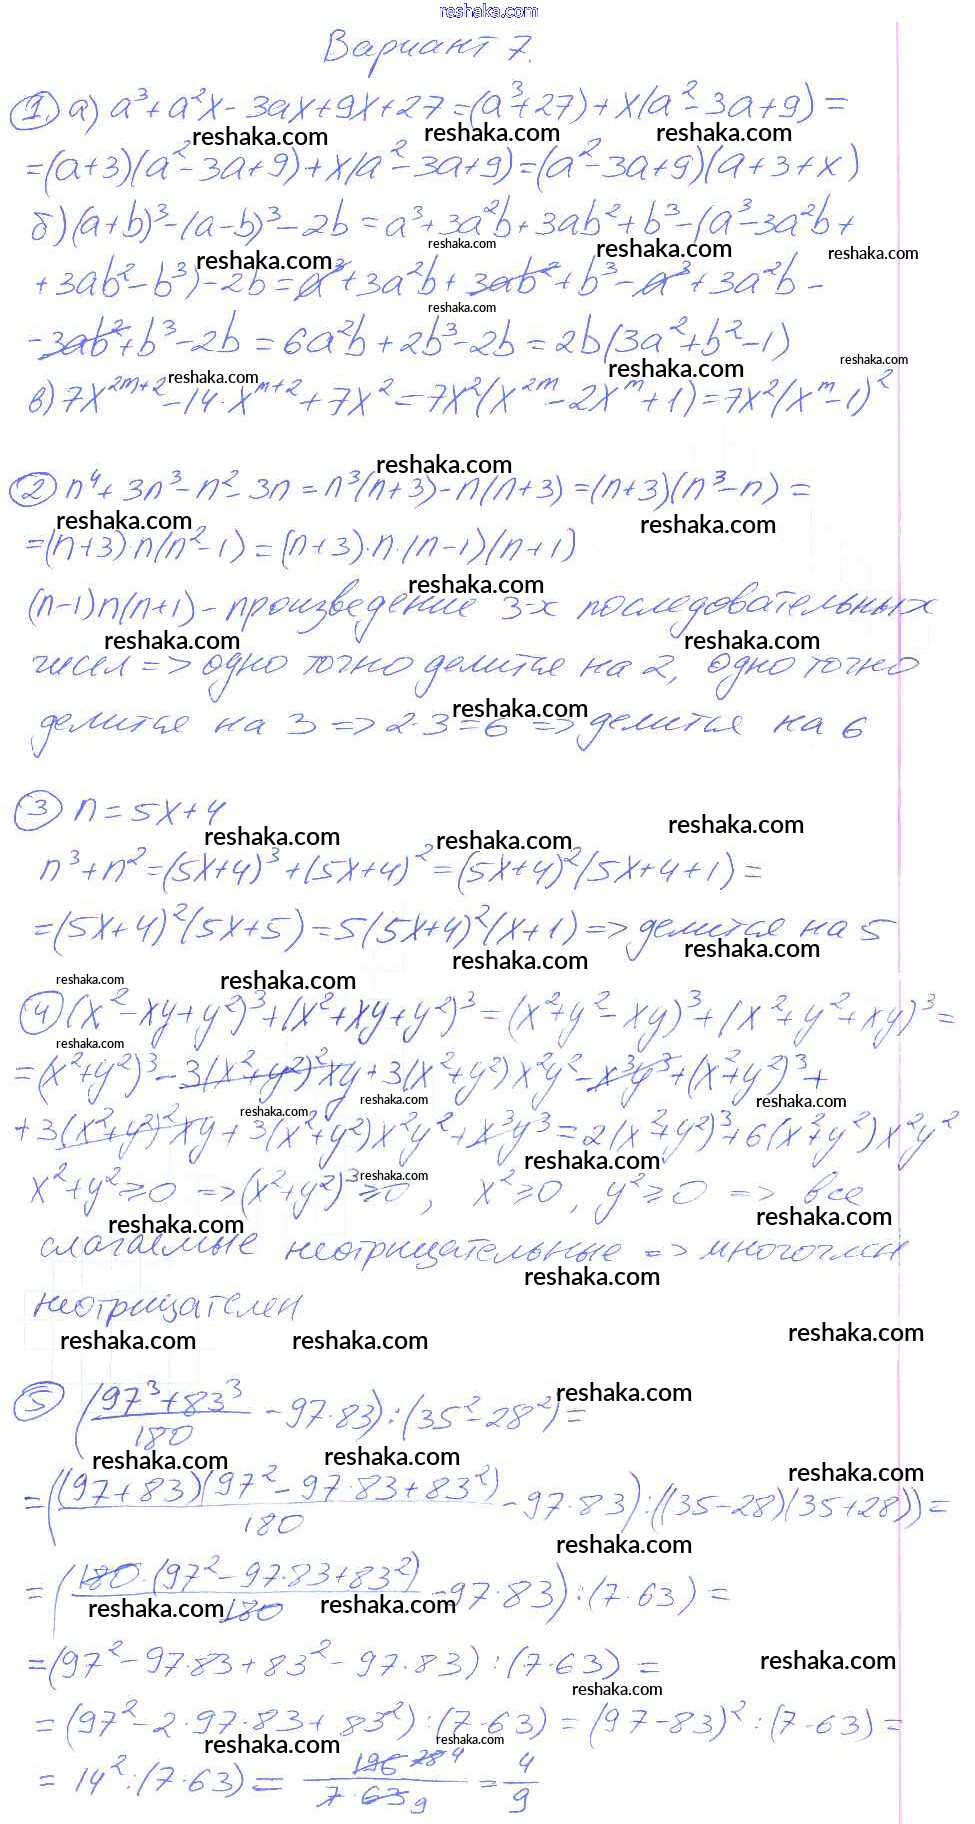 reshaka.com
Вариант 7.
1) а) a³ + a²x - 3ax + 9x + 27 = (a³ + 27) + x(a² - 3a + 9) =
= (a + 3)(a² - 3a + 9) + x(a² - 3a + 9) = (a² - 3a + 9)(a + 3 + x)
б) (a + b)³ - (a - b)³ - 2b = a³ + 3a²b + 3ab² + b³ - (a³ - 3a²b +
+ 3ab² - b³) - 2b = a³ + 3a²b + 3ab² + b³ - a³ + 3a²b -
- 3ab² + b³ - 2b = 6a²b + 2b³ - 2b = 2b(3a² + b² - 1)
в) 7x^(2m+2) - 14·x^(m+2) + 7x² = 7x²(x^(2m) - 2x^m + 1) = 7x²(x^m - 1)²
2) n⁴ + 3n³ - n² - 3n = n³(n + 3) - n(n + 3) = (n + 3)(n³ - n) =
= (n + 3)·n(n² - 1) = (n + 3)·n·(n - 1)(n + 1)
(n - 1)n(n + 1) - произведение 3-х последовательных
чисел => одно точно делится на 2, одно точно
делится на 3 => 2·3 = 6 => делится на 6
3) n = 5x + 4
n³ + n² = (5x + 4)³ + (5x + 4)² = (5x + 4)²(5x + 4 + 1) =
= (5x + 4)²(5x + 5) = 5(5x + 4)²(x + 1) => делится на 5
4) (x² - xy + y²)³ + (x² + xy + y²)³ = (x² + y² - xy)³ + (x² + y² + xy)³ =
= (x² + y²)³ - 3(x² + y²)²xy + 3(x² + y²)x²y² - x³y³ + (x² + y²)³ +
+ 3(x² + y²)²xy + 3(x² + y²)x²y² + x³y³ = 2(x² + y²)³ + 6(x² + y²)x²y²
x² + y² ≥ 0 => (x² + y²)³ ≥ 0, x² ≥ 0, y² ≥ 0 => все
слагаемые неотрицательные => многочлен
неотрицателен
5) ((97³ + 83³)/180 - 97·83) : (35² - 28²) =
= ((97 + 83)(97² - 97·83 + 83²)/180 - 97·83) : ((35 - 28)(35 + 28)) =
= (180·(97² - 97·83 + 83²)/180 - 97·83) : (7·63) =
= (97² - 97·83 + 83² - 97·83) : (7·63) =
= (97² - 2·97·83 + 83²) : (7·63) = (97 - 83)² : (7·63) =
= 14² : (7·63) = 196 28 4/7·63 9 = 4/9